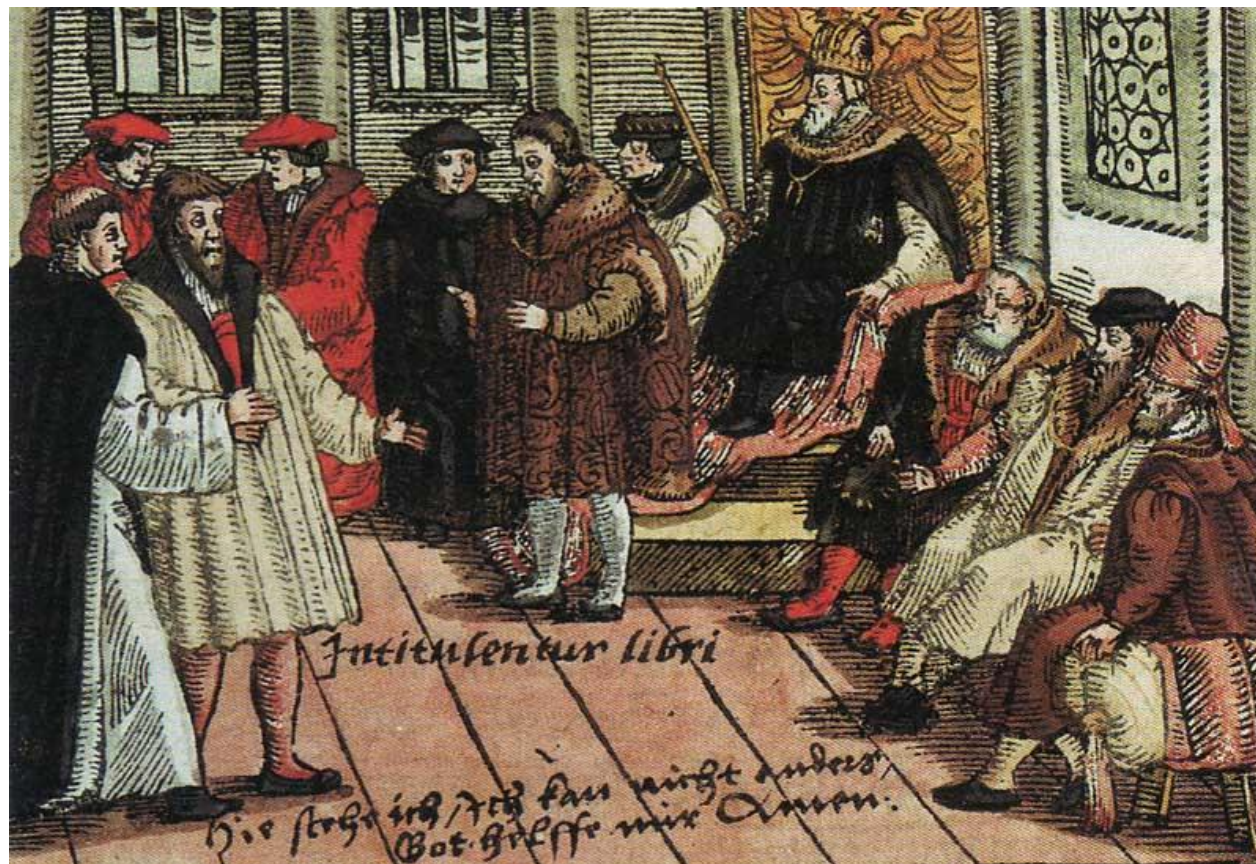 Intitulentur libri
Hie stehe ich, Ich kan nicht anders,
Got helffe mir Amen.